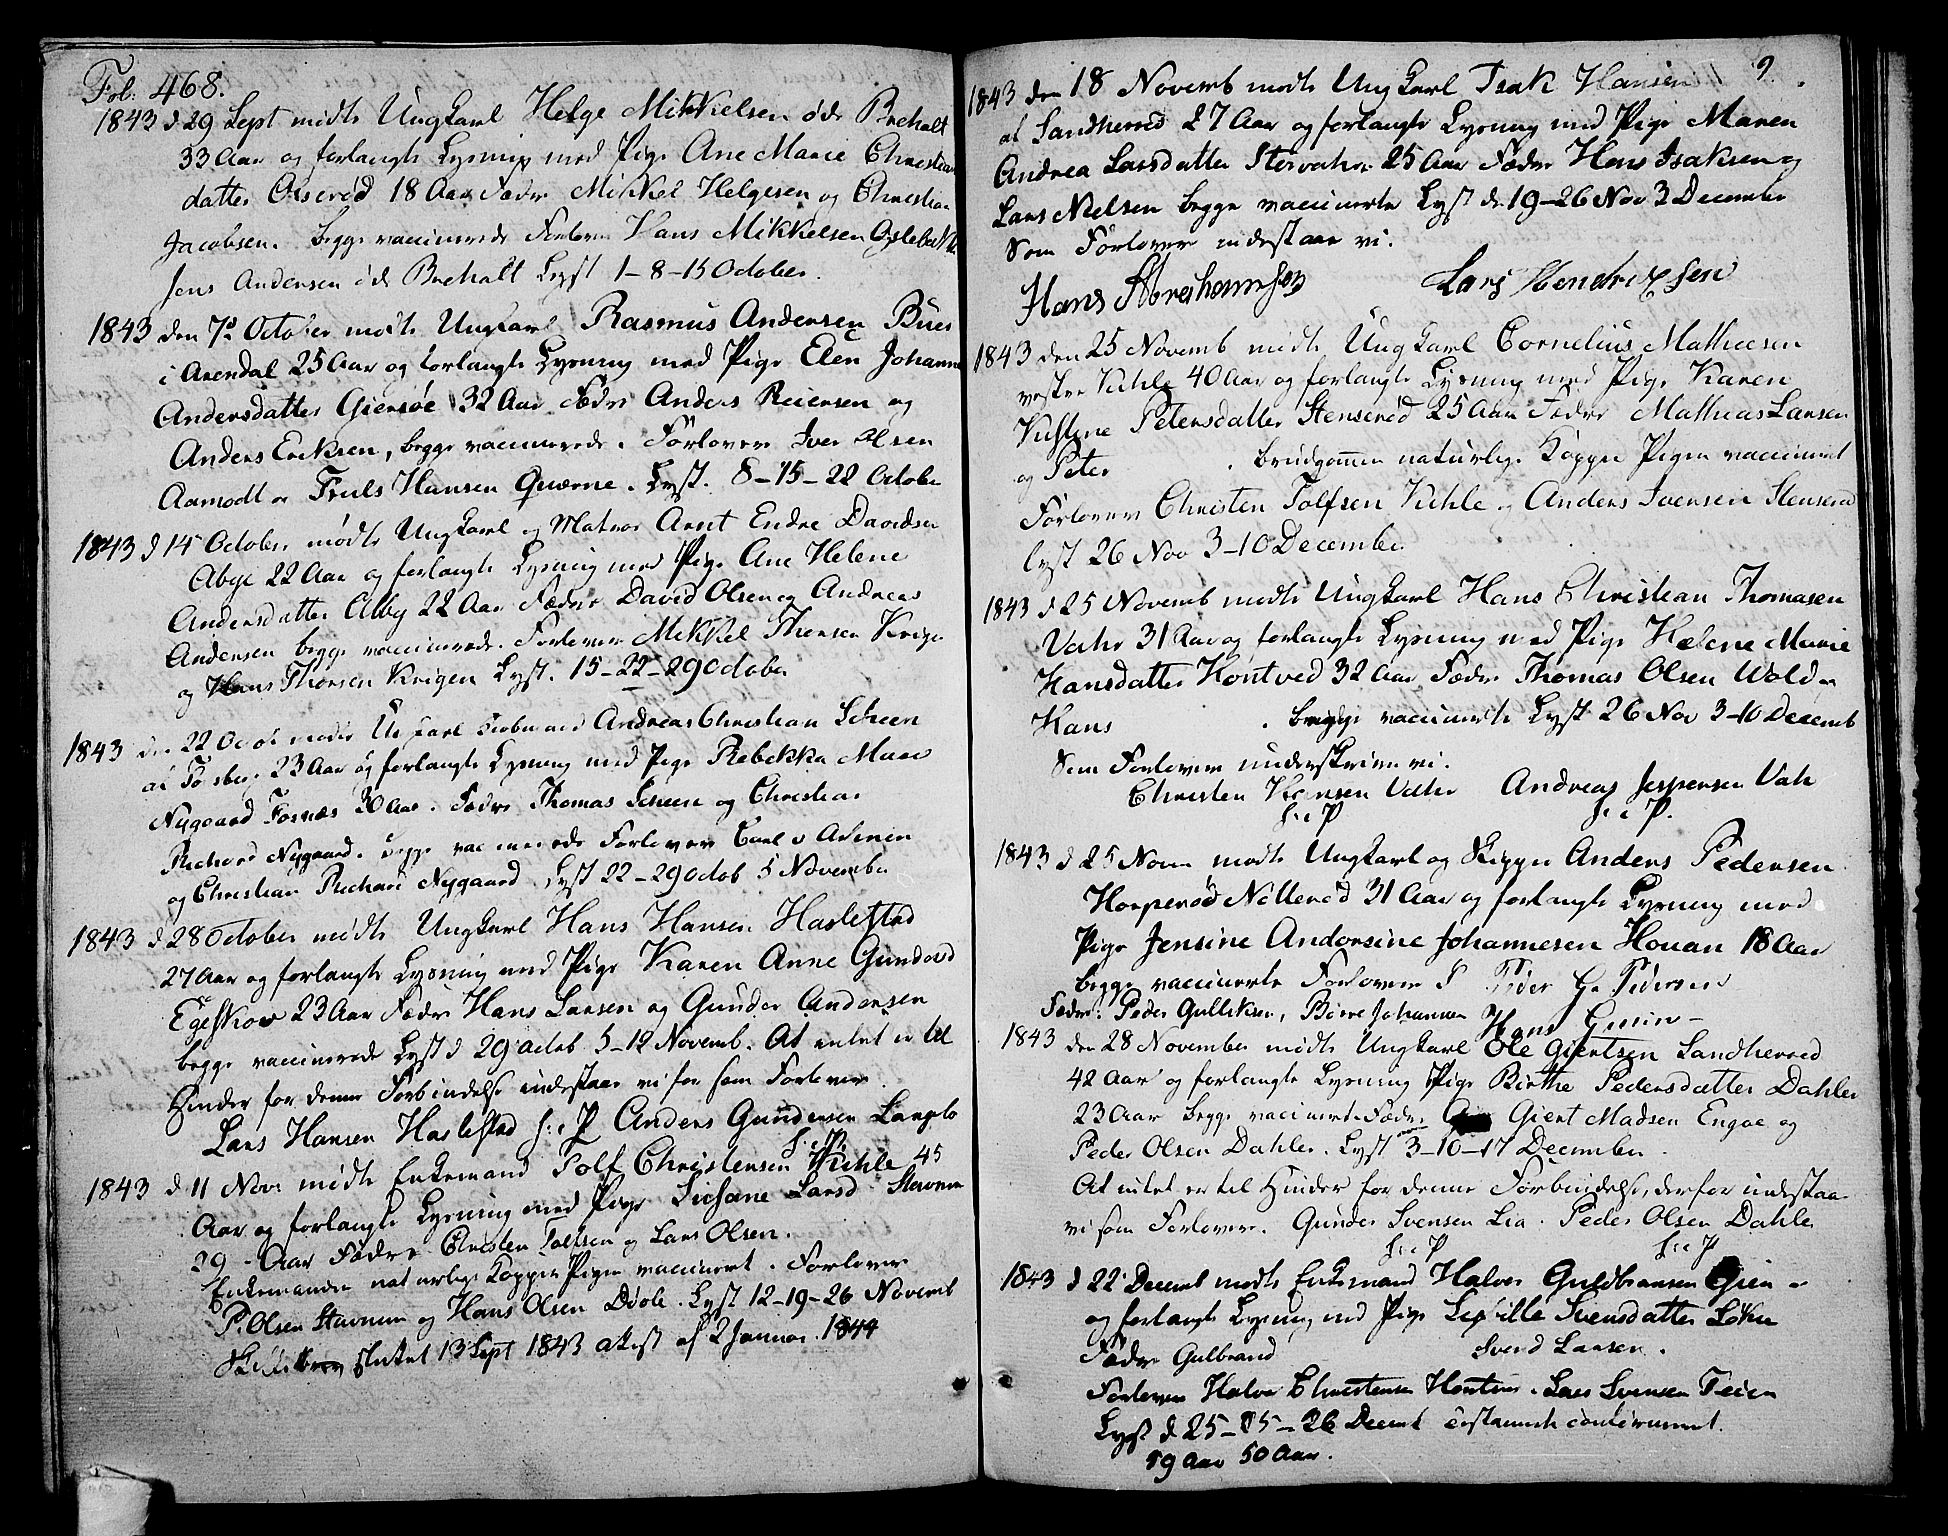 Fol: 468.
1843 d 29 Sept mødte Ungkarl Helge Mikkelsen øde Brehalt
33 Aar og forlangte Lysning med Pige Ane Marie Christian
datter Oserød 18 Aar Fædre Mikkel Helgesen og Christian
Jacobsen. begge vaccinerede Forlover Hans Mikkelsen
Jens Andersen øde Brehalt Lyst 1-8-15 October.
1843 den 7d October mødte Ungkarl Rasmus Andersen Bues
i Arendal 25 Aar og forlangte Lysning med Pige Elen Johanne
Andersdatter Giersøe 32 Aar Fædre Anders Reiersen og
Anders Eriksen, begge vaccinerede. Forlovere Iver Olsen
Aamodt og Truls Hansen Qværne. Lyst. 8-15-22 Octobe
1843 d 14 October mødte Ungkarl og Matros Arnt Endre Davidsen
Abye 22 Aar og forlangte Lysning med Pige Ane Helene
Andersdatter Alby 22 Aar Fædre David Olsen og Andreas
Andersen begge vaccinerede. Forlovere Mikkel Thorsen Krigen
og Hans Thorsen Krigen Lyst. 15-22-29 October
1843 den 22 Octob mødte Ungkarl Andreas Christian Scheen
af Tønsberg 23 Aar og forlangte Lysning med Pige Rebekka Marie
Nygaard Fosnæs 30 Aar. Fædre Thomas Scheen og Christian
Richard Nygaard. begge vaccinerede Forlovere Carl
og Christian Richard Nygaard Lyst 22-29 Octob 5 November
1843 d 28 October mødte Ungkarl Hans Hansen Haslestad
27 Aar og forlangte Lysning med Pige Karen Anne Gundersd
Egeskov 23 Aar Fædre Hans Larsen og Gunder Andersen
begge vaccinerede Lyst d 29 Octob 5-12 Novemb. At intet er til
Hinder for denne Forbindelse indestaae vi for som Forlovere
Lars Hansen Haslestad h:i P Anders Gundersen Langlo
h:i P
1843 d 11 Nov mødte Enkemand Tolf Christensen Vihle 45
Aar og forlangte Lysning med Pige Larsd Stavnum
29 - Aar Fædre Christen Tolfsen og Lars Olsen.
Enkemanden naturlige Kopper Pigen vaccineret. Forlovere
P. Olsen Stavnum og Hans Olsen Lyst 12-19-26 Novemb
Skiftebrev sluttet 13 Sept 1843 attest af 2 Januar. 1844
9.
1843 den 18 Novemb mødte Ungkarl Isak Hansen
af Sandherred 27 Aar og forlangte Lysning med Pige Maren
Andrea Larsdatter Storvahr 25 Aar Fædre Hans Isaksen og
Lars Nielsen begge vaccinerte Lyst d 19-26 Nov 3 December
Som Forlovere indestaar vi.
Hans Abrahamsen Lars Hendrichsen
1843 den 25 Novemb mødte Ungkarl Cornelius Mathiesen
vestre Vihle 40 Aar og forlangte Lysning med Pige Karen
Kistine Petersdatter Stenserød 25 Aar Fædre Mathias Larsen
og Peter . Brudgommen naturlige Kopper Pigen vaccineret
Forlovere Christen Tolfsen Vihle og Anders Iversen Stenserød
lyst 26 Nov 3-10 December
1843 d 25 Novemb mødte Ungkarl Hans Christian Thomasen
Vahr 31 Aar og forlangte Lysning med Pige Helene Marie
Hansdatter Hontved 32 Aar Fædre Thomas Olsen Wold og
Hans . begge vaccinerte Lyst 26 Nov 3-10 Decemb
Som Forlovere underskrive vi.
Christen Hansen Vahr Andreas Jespersen Vahr
h:i P h:i P.
1843 d 25 Novem mødte Ungkarl og Skipper Anders Pedersen
Horperød Nøtterø 31 Aar og forlangte Lysning med
Pige Jensine Andorsine Johannesen Houan 18 Aar
begge vaccinerte Forlovere Peder Pedersen
Fædre: Peder Gulliksen, Børre Johansen Hans
1843 den 28 November mødte Ungkarl Ole Giertsen Sandherred
42 Aar og forlangte Lysning Pige Birthe Pedersdatter Dahler
23 Aar begge vaccinerte Fædre Giert Madsen Engae og
Peder Olsen Dahler. Lyst 3-10-17 December.
At intet er til Hinder for denne Forbindelse, derfor indestaae
vi som Forlovere. Gunder Svensen Lia. Peder Olsen Dahler
h:i P h:i P
1843 d 22 Decemb mødte Enkemand Halvor Guldbransen Grien
og forlangte Lysning med Pige Svensdatter Løken
Fædre Gulbrand Svend Larsen.
Forlovere Halvor Christensen Lars Svensen Feien
Lyst d 25-25-26 Decemb
59 Aar 50 Aar.